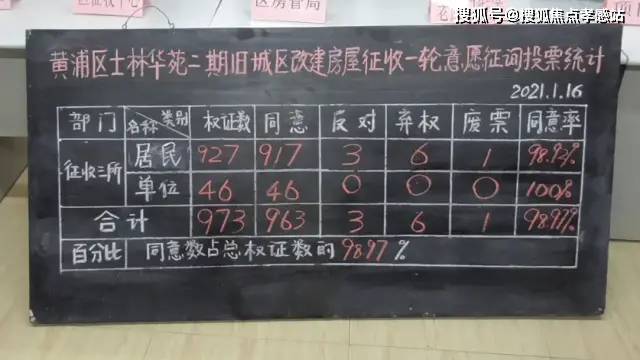 区征收中心
区房管局
搜狐号@搜狐焦点孝感站
黄浦区士林华苑二期旧城区改建房屋征收一轮意愿征询投票统计
2021.1.16
部门 名称 类别 权证数 同意 反对 弃权 废票 同意率
征收三所 居民 927 917 3 6 1 98.92%
单位 46 46 0 0 0 100%
合计 973 963 3 6 1 98.97%
百分比 同意数占总权证数的 98.97 %